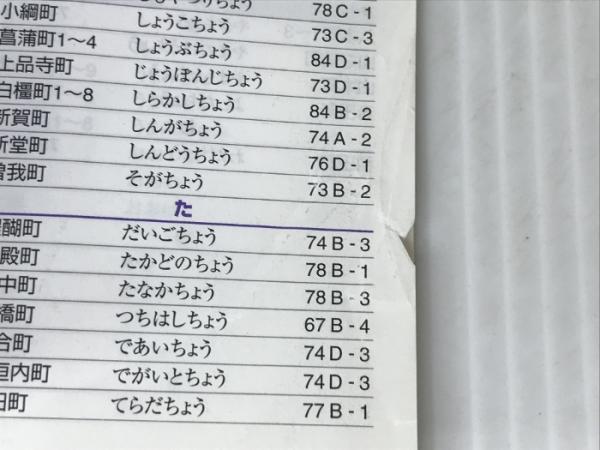 78C-1
小綱町 しょうこちょう 73C-3
菖蒲町1〜4 しょうぶちょう 84D-1
上品寺町 じょうぼんじちょう 73D-1
白橿町1〜8 しらかしちょう 84B-2
新賀町 しんがちょう 74A-2
新堂町 しんどうちょう 76D-1
曽我町 そがちょう 73B-2
た
醍醐町 だいごちょう 74B-3
殿町 たかどのちょう 78B-1
中町 たなかちょう 78B-3
橋町 つちはしちょう 67B-4
合町 であいちょう 74D-3
垣内町 でがいとちょう 74D-3
田町 てらだちょう 77B-1